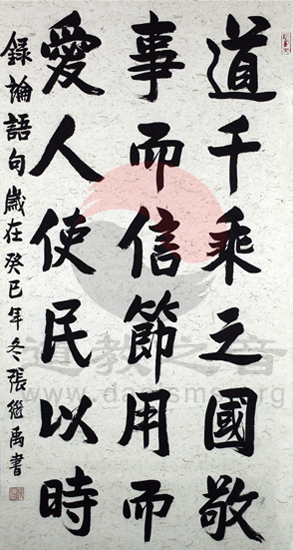 道千乘之國敬
事而信節用而
愛人使民以時
錄論語句歲在癸巳年冬張继禹書
道教之音
www.daoisms.org